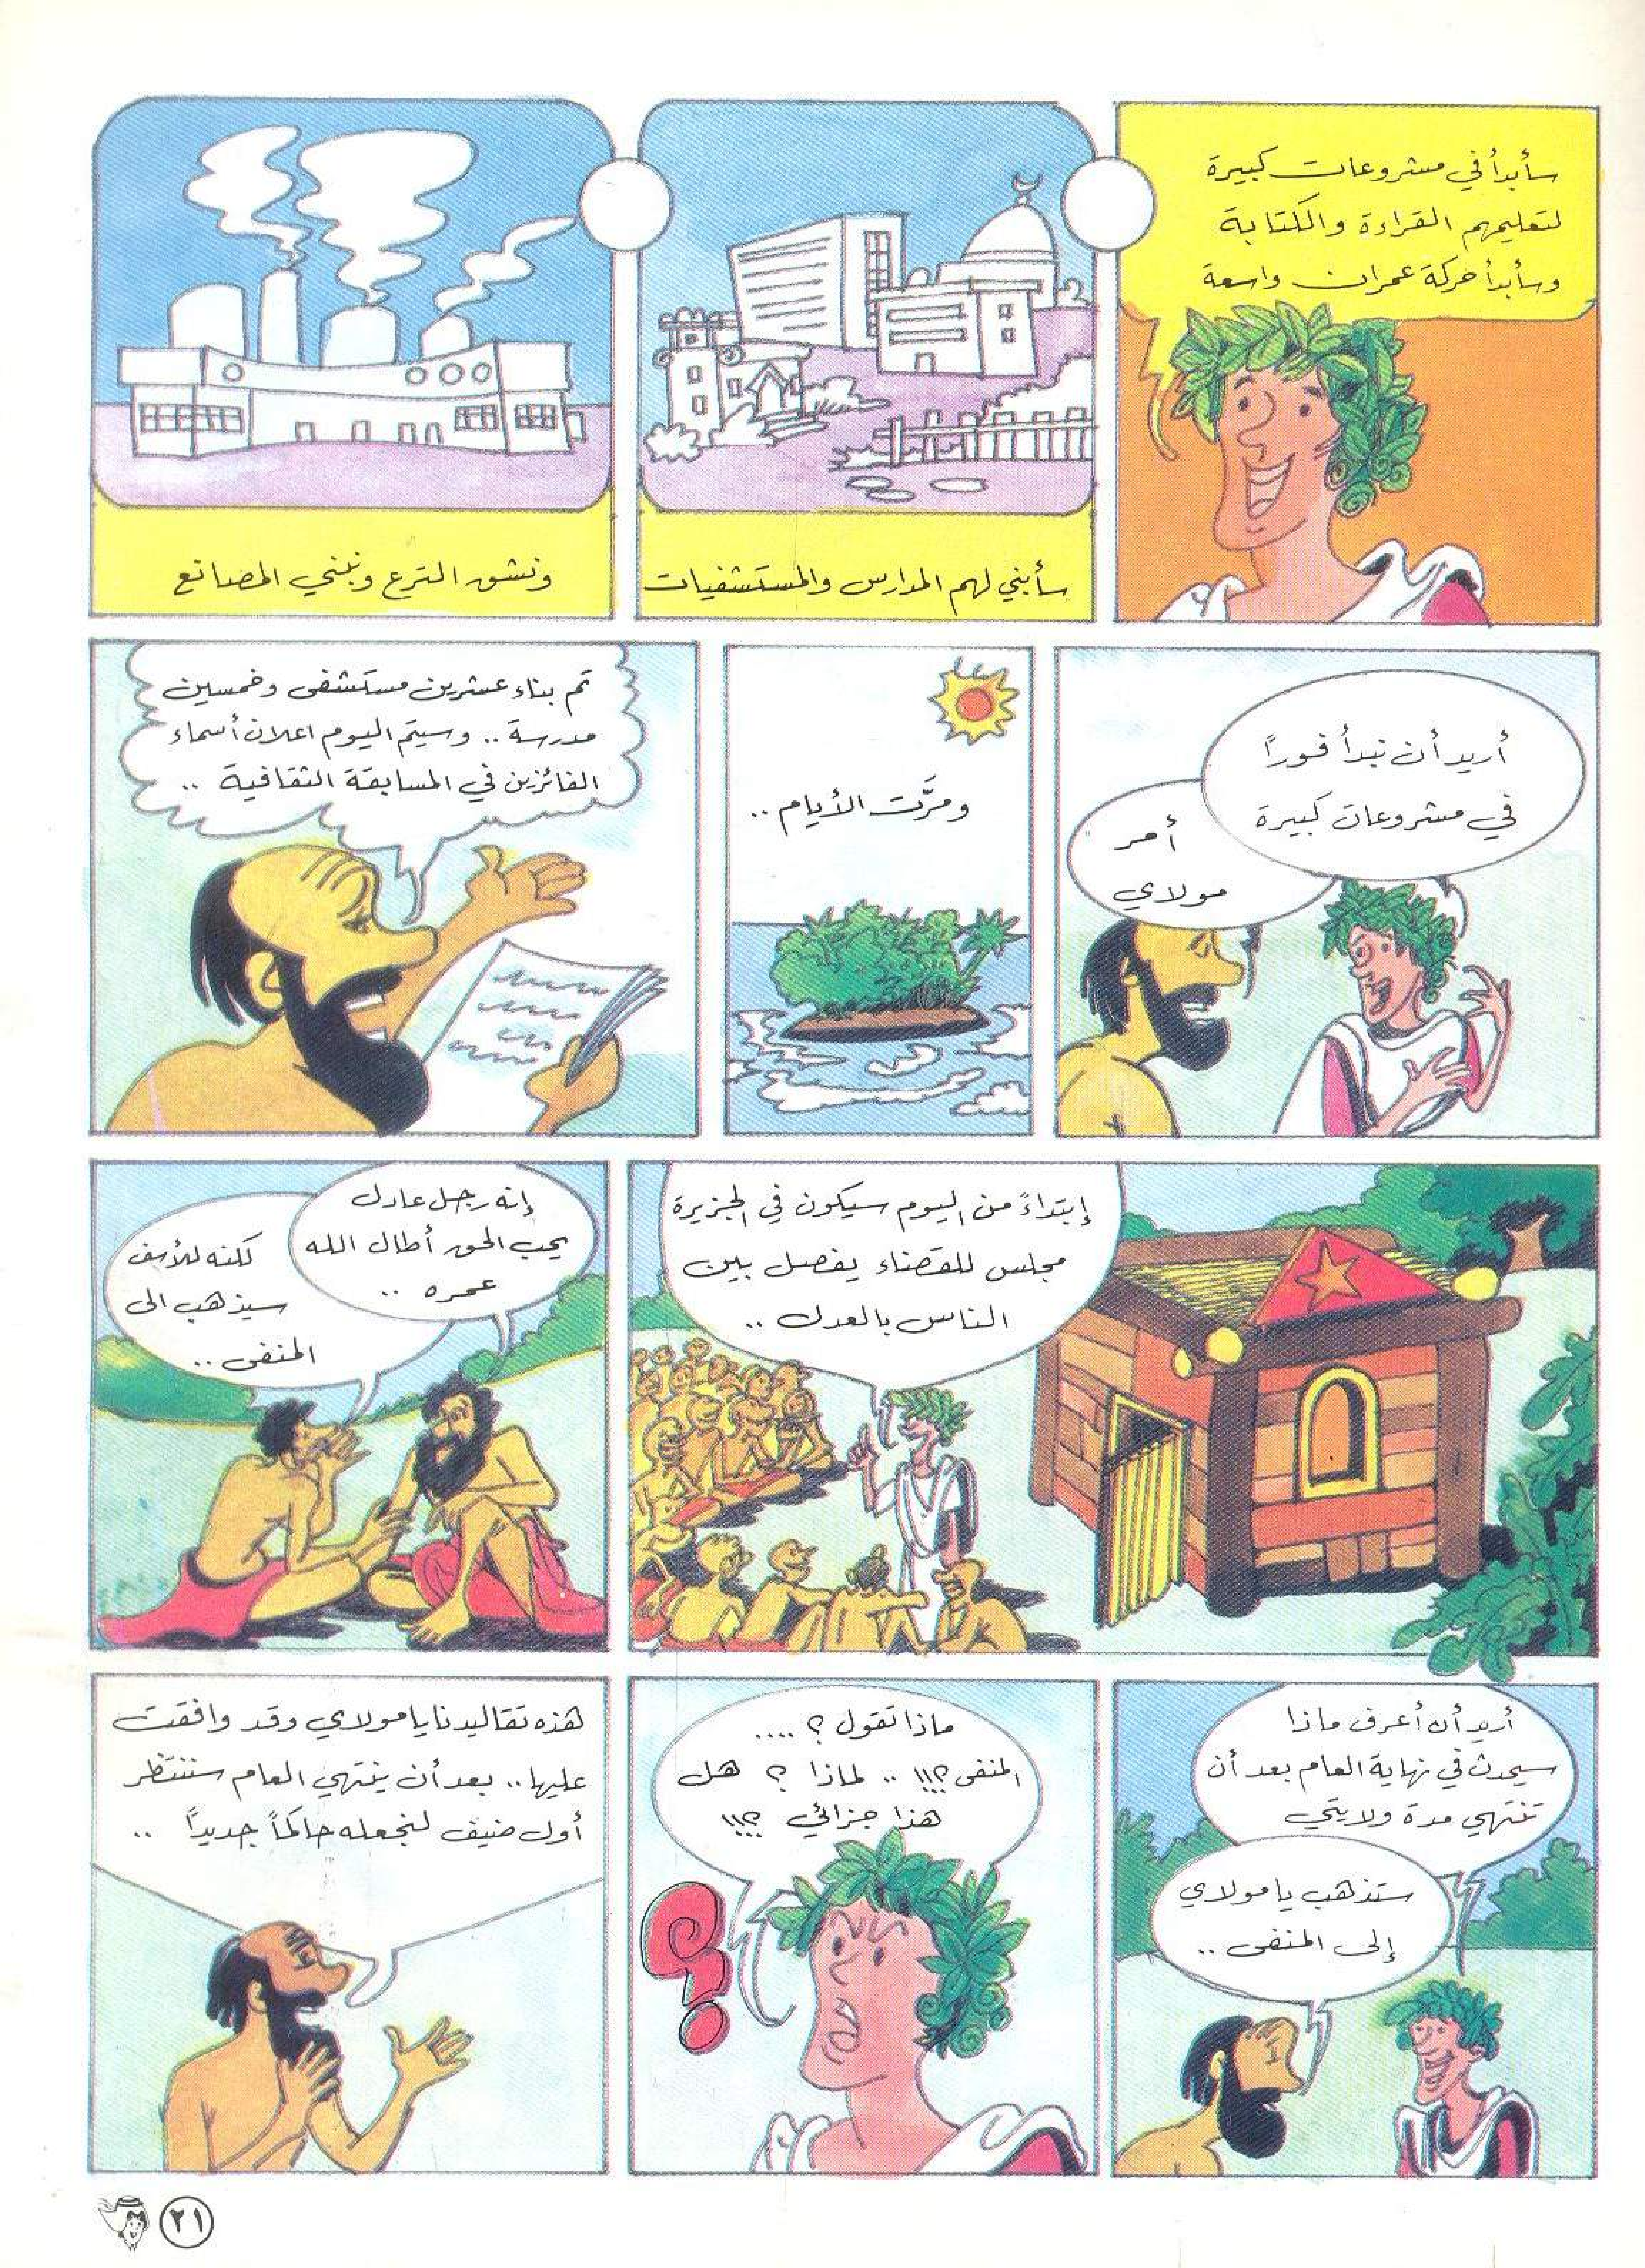 سأبدأ في مشروعات كبيرة
لتعليمهم القراءة والكتابة
وسأبدأ حركة عمران واسعة
سأبني لهم المدارس والمستشفيات
ونشق الترع ونبني المصانع
أريد أن نبدأ فوراً
في مشروعات كبيرة
أمر
مولاي
ومرَّت الأيام ..
تم بناء عشرين مستشفى وخمسين
مدرسة .. وسيتم اليوم اعلان أسماء
الفائزين في المسابقة الثقافية ..
إبتداءً من اليوم سيكون في الجزيرة
مجلس للقضاء يفصل بين
الناس بالعدل ..
إنه رجل عادل
يحب الحق أطال الله
عمره ..
لكنه للأسف
سيذهب الى
المنفى ..
أريد أن أعرف ماذا
سيحدث في نهاية العام بعد أن
تنتهي مدة ولايتي
ستذهب يا مولاي
إلى المنفى ..
ماذا تقول ؟ ....
المنفى ؟!!! .. لماذا ؟ هل
هذا جزائي ؟!!!
هذه تقاليدنا يا مولاي وقد وافقت
عليها .. بعد أن ينتهي العام سننتظر
أول ضيف لنجعله حاكماً جديداً ..
٢١